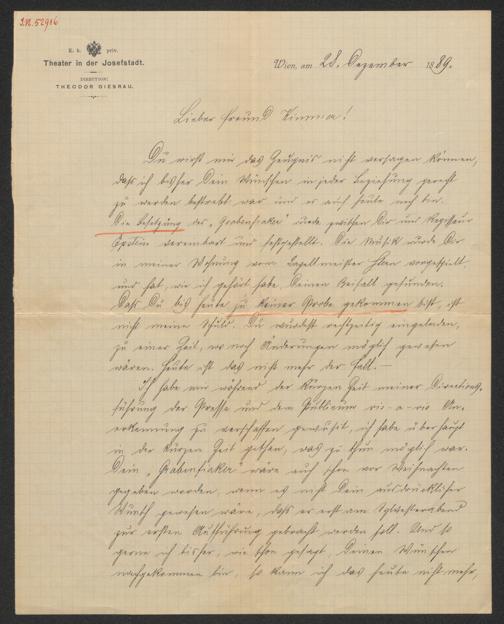 I.N. 52916
K. k. priv.
Theater in der Josefstadt.
DIRECTION:
THEODOR GIESRAU.
Wien, am 28. Dezember 1889.
Lieber Freund
Du wirst mir das Zeugnis nicht versagen können,
daß ich bisher Dein Wünschen in jeder Beziehung gerecht
zu werden bestrebt war und es auch heute noch bin.
Die Besetzung des „Grabenfiaker" wurde zwischen Dir und Regisseur
vereinbart und festgestellt. Die Musik wurde Dir
in meiner Wohnung vom Capellmeister vorgespielt
und hat, wie ich gehört habe Deinen Beifall gefunden.
Daß Du bis heute zu keiner Probe gekommen bist, ist
nicht meine Schuld. Du wurdest rechtzeitig eingeladen,
zu einer Zeit, wo noch Änderungen möglich gewesen
wären. Heute ist das nicht mehr der Fall.—
Ich habe mir während der kurzen Zeit meiner Directions-
führung der Presse und dem Publicum vis-a-vis An-
erkennung zu verschaffen gewußt, ich habe überhaupt
in der kurzen Zeit gethan, was zu thun möglich war.
Dein „Grabenfiaker" wäre auch schon vor Weihnachten
gegeben worden, wenn es nicht Dein ausdrücklicher
Wunsch gewesen wäre, daß er erst am Sylvesterabend
zur ersten Aufführung gebracht werden soll. Und so
gerne ich bisher, wie schon gesagt, Deinen Wünschen
nachgekommen bin, so kann ich das heute nicht mehr,